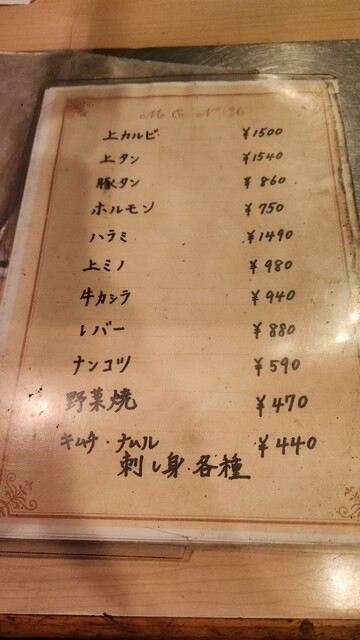 MENU
上カルビ ¥1500
上タン ¥1540
豚タン ¥860
ホルモン ¥750
ハラミ ¥1490
上ミノ ¥980
牛カシラ ¥940
レバー ¥880
ナンコツ ¥590
野菜焼 ¥470
キムチ・ナムル ¥440
刺し身各種